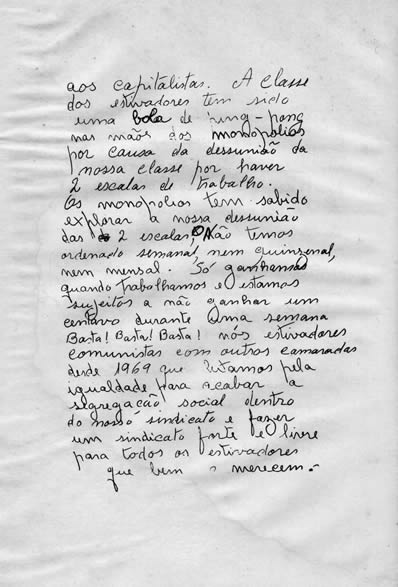 aos capitalistas. A classe
dos estivadores tem sido
uma bola de ping-pong
nas mãos dos monopolios
por causa da dessunião da
nossa classe por haver
2 escalas de trabalho.
Os monopolios tem sabido
explorar a nossa dessunião
das 2 escalas, Não temos
ordenado semanal, nem quinzenal,
nem mensal. Só ganhamos
quando trabalhamos e estamos
sujeitos a não ganhar um
centavo durante uma semana
Basta! Basta! Basta! nós estivadores
comunistas com outros camaradas
desde 1969 que lutamos pela
igualdade para acabar a
segregação social dentro
do nosso sindicato e fazer
um sindicato forte e livre
para todos os estivadores
que bem o merecem.